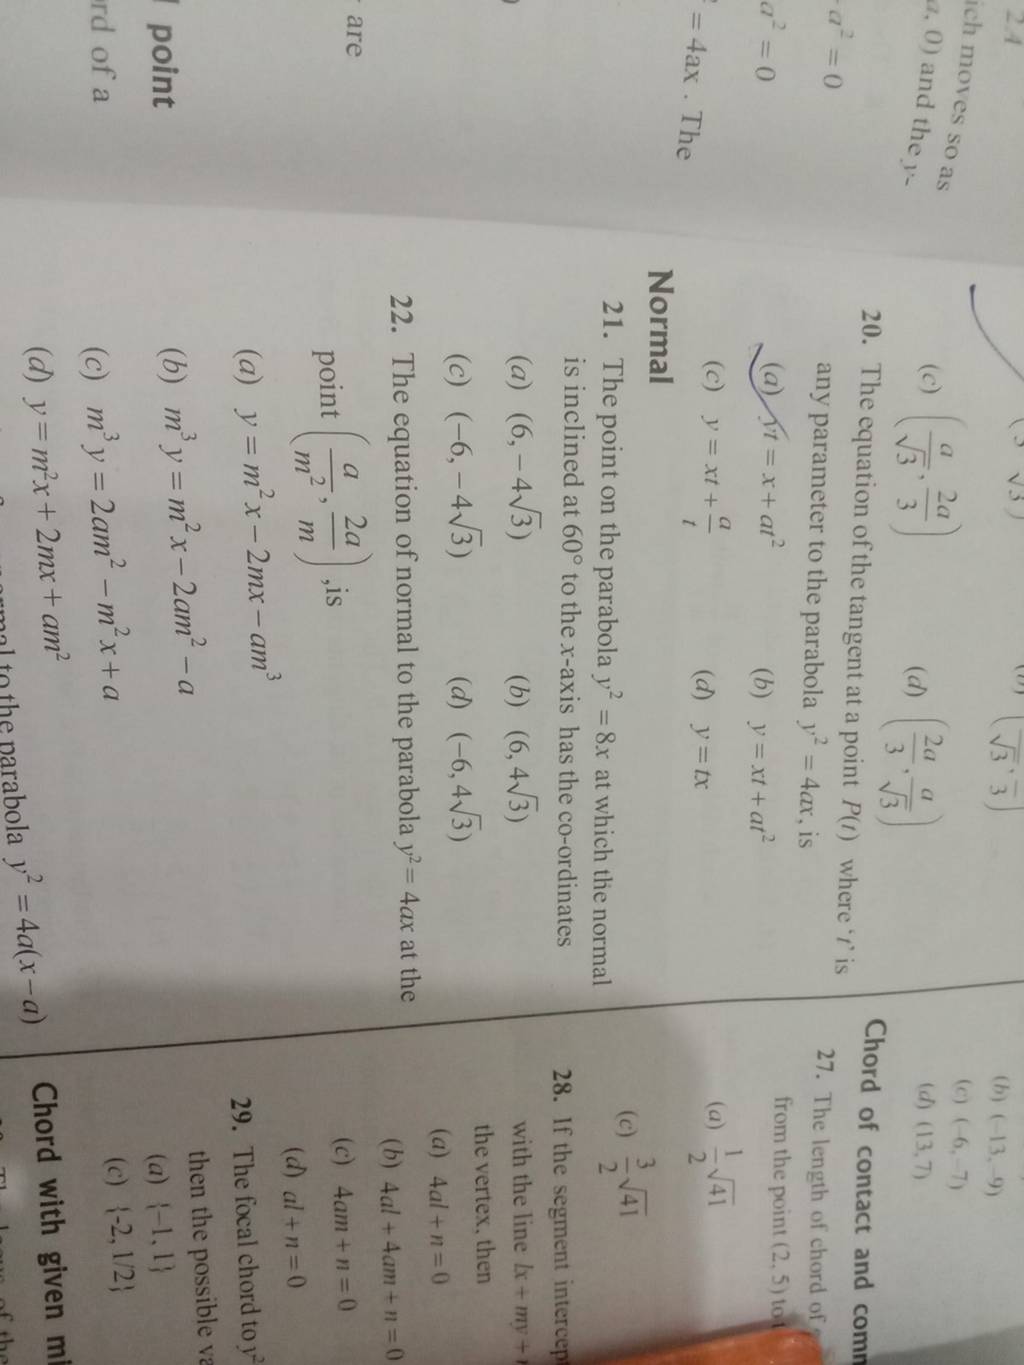 are
point
rd of a
= 4ax . The
a² = 0
a² = 0
2.4
ich moves so as
a, 0) and the y-
(c) (a/√3, 2a/3)
(d) (2a/3, a/√3)
20. The equation of the tangent at a point P(t) where 't' is
any parameter to the parabola y² = 4ax, is
(a) yt = x + at²
(b) y = xt + at²
(c) y = xt + a/t
(d) y = tx
Normal
21. The point on the parabola y² = 8x at which the normal
is inclined at 60° to the x-axis has the co-ordinates
(a) (6, −4√3)
(b) (6, 4√3)
(c) (−6, −4√3)
(d) (−6, 4√3)
22. The equation of normal to the parabola y² = 4ax at the
point (a/m², 2a/m), is
(a) y = m²x − 2mx − am³
(b) m³y = m²x − 2am² − a
(c) m³y = 2am² − m²x + a
(d) y = m²x + 2mx + am²
to the parabola y² = 4a(x − a)
(b) (−13, −9)
(c) (−6, −7)
(d) (13, 7)
Chord of contact and
27. The length of chord of
from the point (2, 5) to
(a) 1/2 √41
(c) 3/2 √41
28. If the segment
with the line lx + my +
the vertex, then
(a) 4al + n = 0
(b) 4al + 4am + n = 0
(c) 4am + n = 0
(d) al + n = 0
29. The focal chord to y²
then the possible
(a) {−1, 1}
(c) {-2, 1/2}
Chord with given